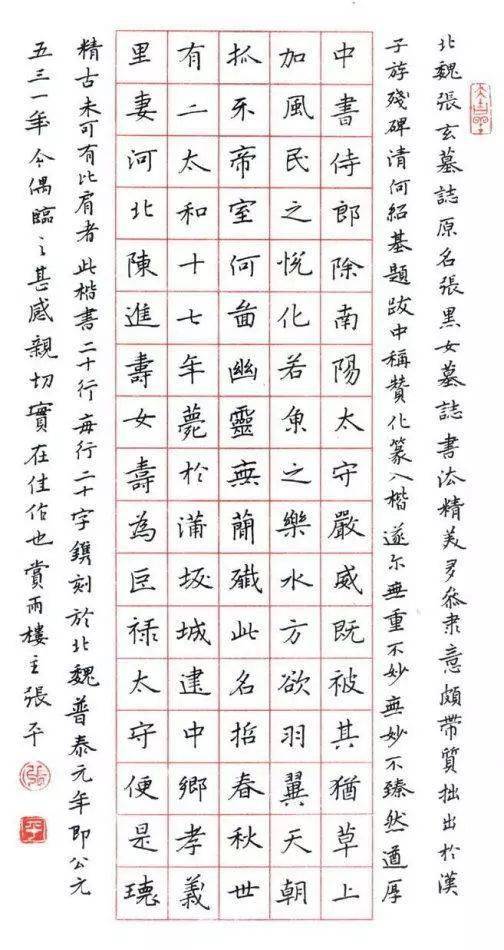 北魏張玄墓誌原名張黑女墓誌書法精美多參隶意頗带質拙出於漢
子游殘碑清何紹基題跋中稱贊化篆入楷遂尔無重不妙無妙不臻然遒厚
中書侍郎除南陽太守嚴威既被其猶草上
加風民之悦化若魚之樂水方欲羽翼天朝
抓牙帝室何啚幽靈無簡殲此名哲春秋世
有二太和十七年薨於蒲坂城建中鄉孝義
里妻河北陳進壽女壽為巨禄太守便是瓌
精古未可有比肩者此楷書二十行每行二十字鐫刻於北魏普泰元年即公元
五三一年今偶臨之甚感親切實在佳作也賞雨樓主張平
張
平